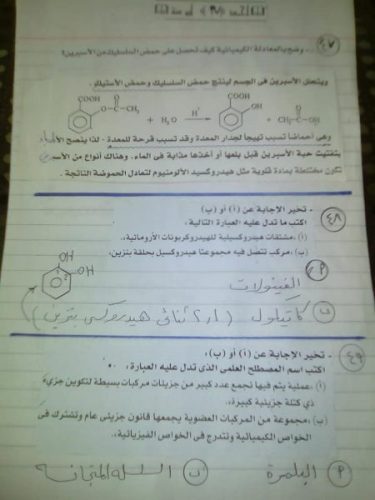 ٤٧
- وضح بالمعادلة الكيميائية كيف تحصل على حمض السلسليك من الأسبرين؟
ويتحلل الأسبرين فى الجسم لينتج حمض السلسليك وحمض الأستيك
COOH
O-C-CH₃
O
+ H₂O
H⁺
COOH
OH
+ CH₃C-OH
O
وهى أحماضاً تسبب تهيجاً لجدار المعدة وقد تسبب قرحة للمعدة - لذا ينصح الأطباء
بتفتيت حبة الأسبرين قبل بلعها أو أخذها مذابة فى الماء. وهناك أنواع من الأسبرين
تكون مختلطة بمادة قلوية مثل هيدروكسيد الألومنيوم لتعادل الحموضة الناتجة.
٤٨
- تخير الإجابة عن (أ) أو (ب)
اكتب ما تدل عليه العبارة التالية:
(أ): مشتقات هيدروكسيلية للهيدروكربونات الأروماتية.
(ب): مركب تتصل فيه مجموعتا هيدروكسيل بحلقة بنزين.
P الفينولات
OH
OH
1
2
ب كاتيكول (٢،١ ثنائى هيدروكسى بنزين)
٤٩
- تخير الإجابة عن (أ) أو (ب):
اكتب اسم المصطلح العلمى الذى تدل عليه العبارة:
(أ): عملية يتم فيها تجمع عدد كبير من جزيئات مركبات بسيطة لتكوين جزئ
ذى كتلة جزيئية كبيرة.
(ب): مجموعة من المركبات العضوية يجمعها قانون جزيئى عام وتشترك فى
الخواص الكيميائية وتتدرج فى الخواص الفيزيائية.
P البلمرة ب السلسلة المتجانسة